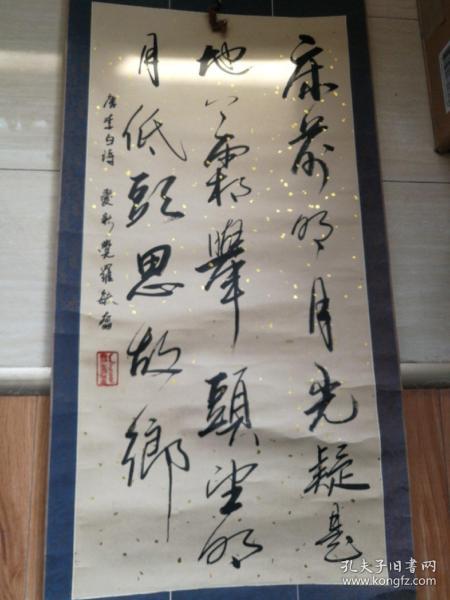 床前明月光疑是
地上霜舉頭望明
月低頭思故鄉
唐李白诗 愛新覺羅毓
孔夫子旧书网
www.kongfz.com